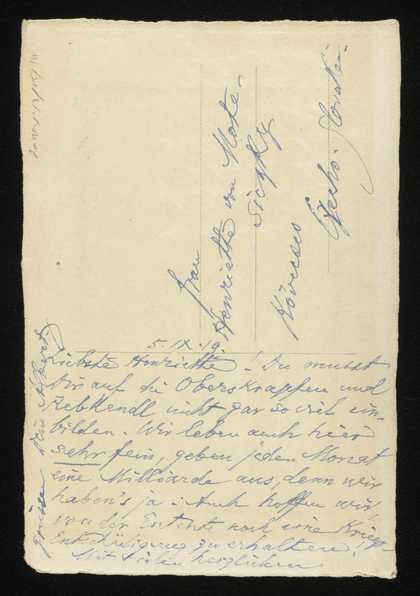 Frau
Henriette von Motesiczky
Köveses
Czecho-Slovakei.
5. IX. 19.
Liebste Henriette! Du musst
Dir auf die Oberskrapfen und
nicht gar so viel ein-
bilden. Wir leben auch hier
sehr fein, geben jeden Monat
eine Milliarde aus, denn wir
haben's ja. Auch hoffen wir
von der Entente noch eine Kriegs-
Entschädigung zu erhalten!
Mit vielen herzlichen